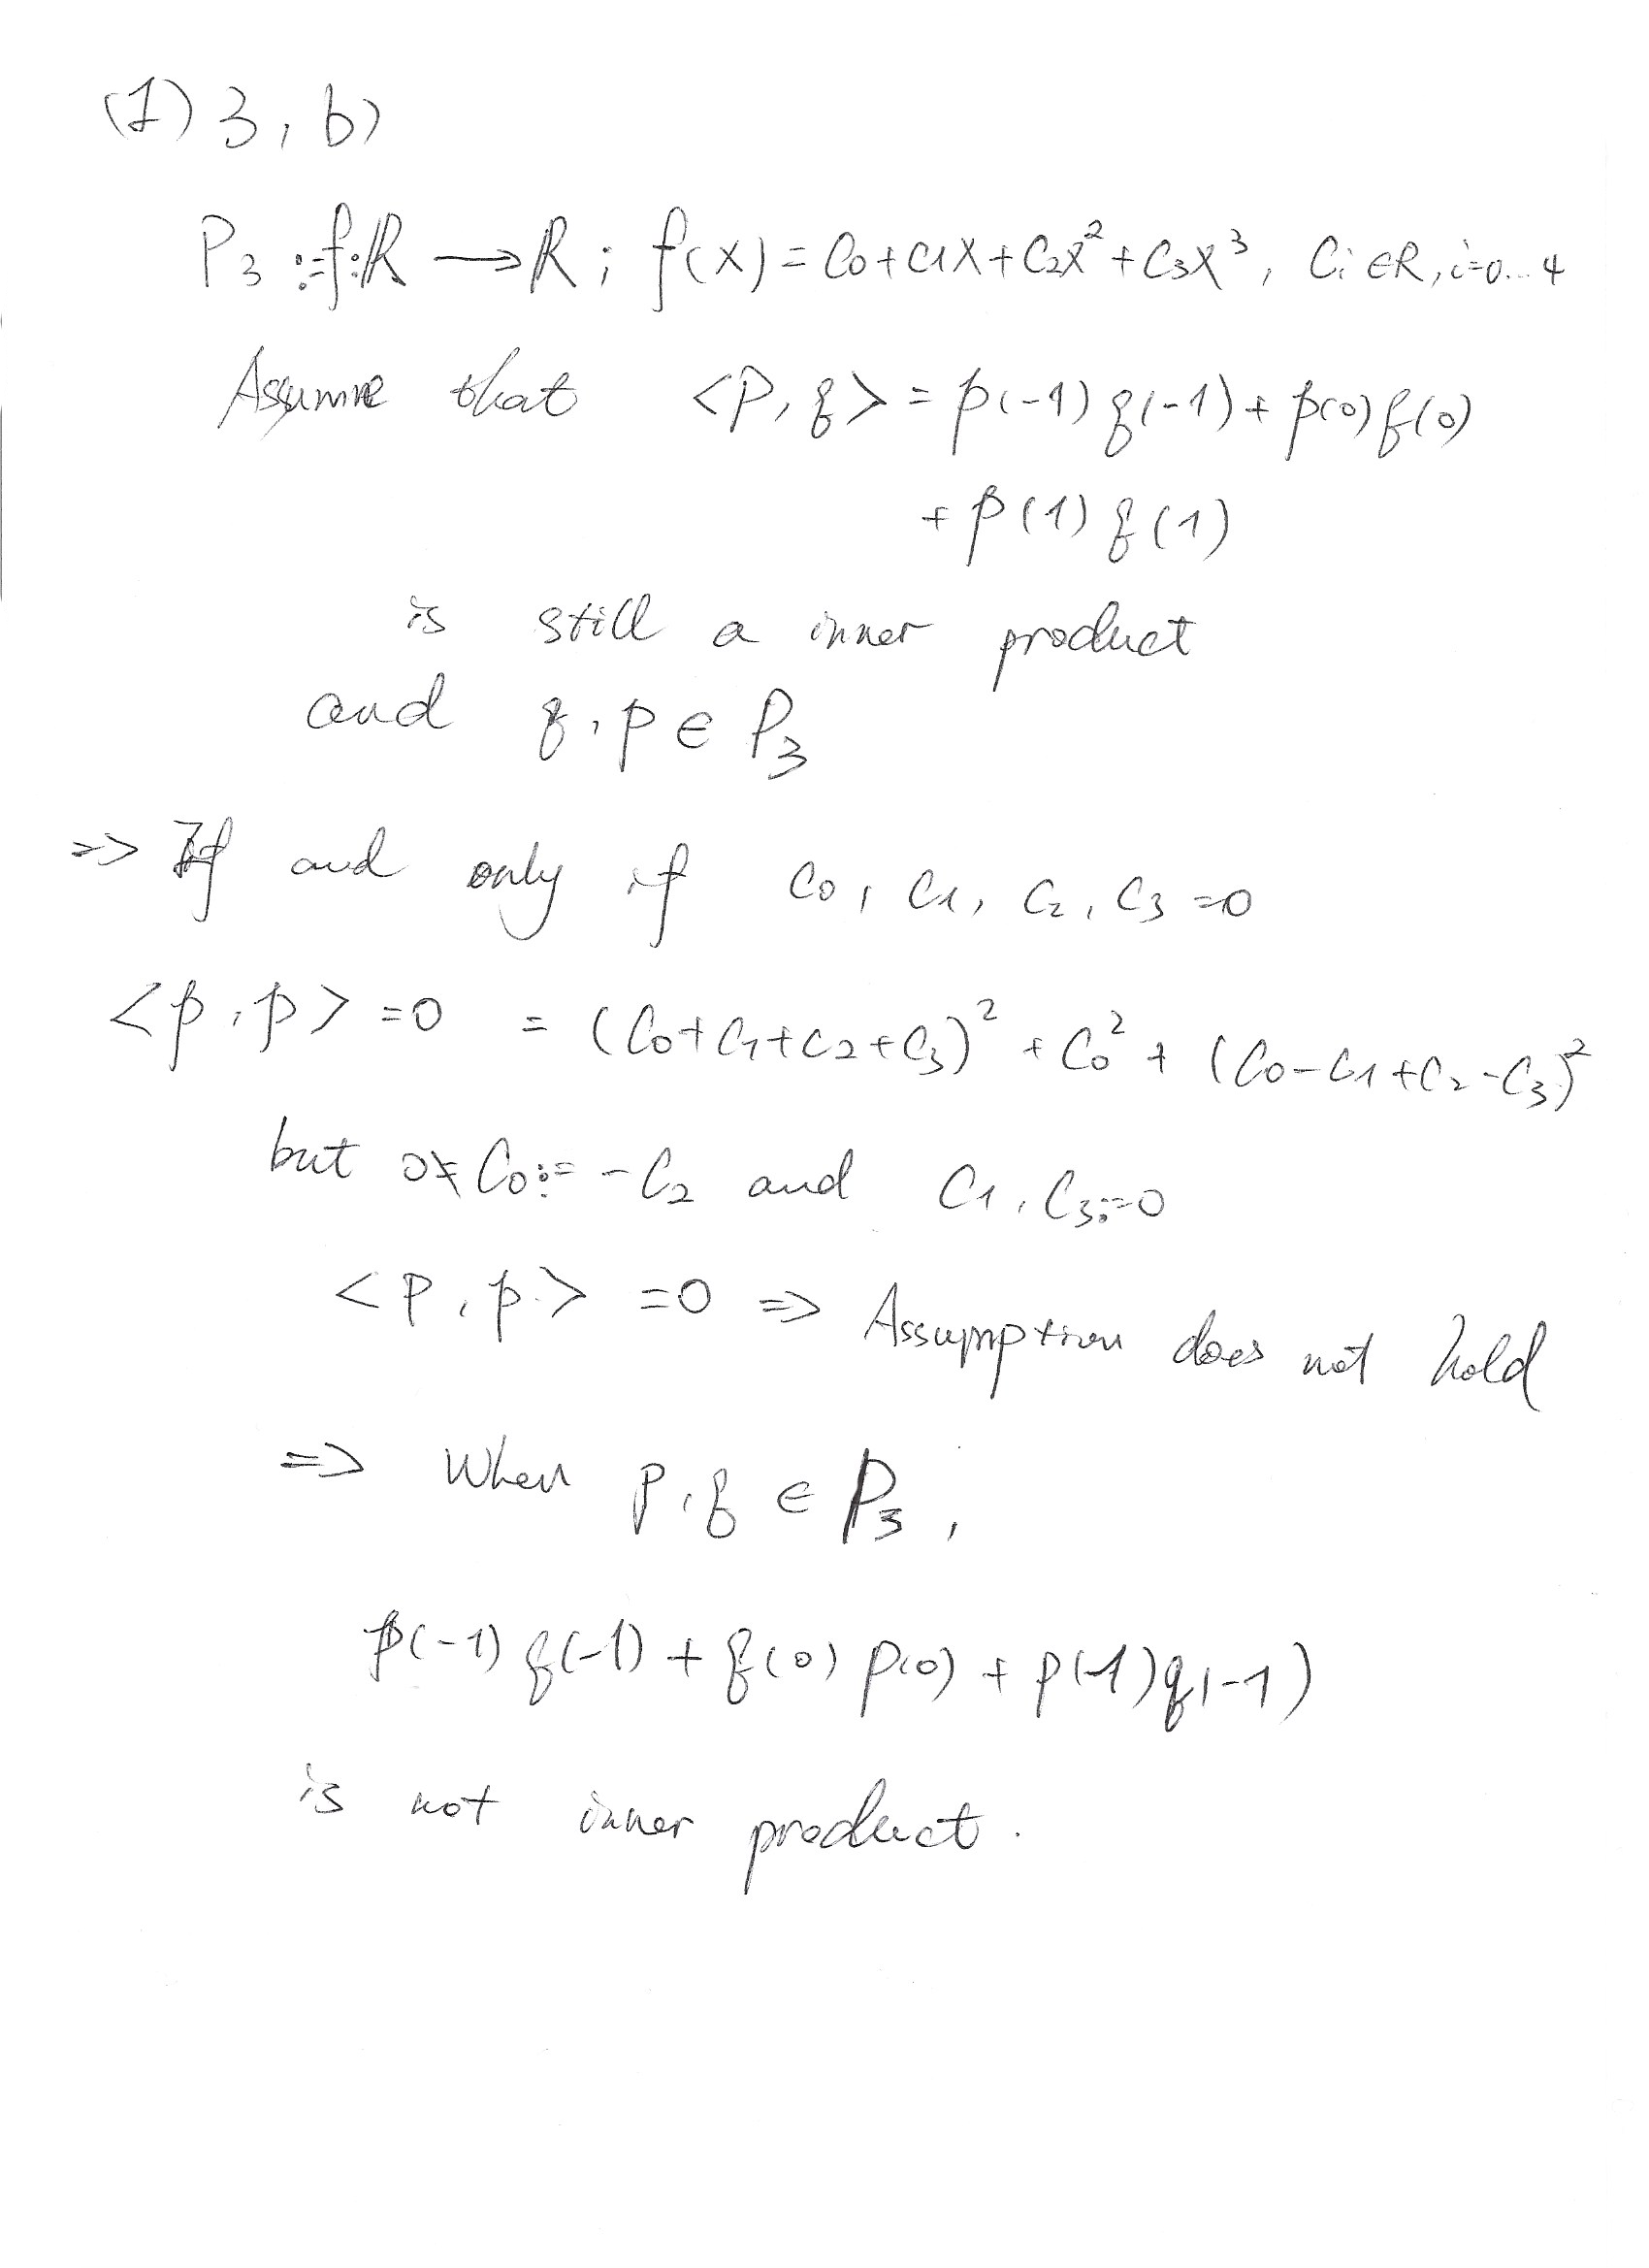 (1) 3, b)
P₃ := f: ℝ → ℝ; f(x) = C₀ + C₁x + C₂x² + C₃x³, Cᵢ ∈ R, i=0...4
Assume that <P, q> = p(-1) q(-1) + p(0) q(0)
+ p(1) q(1)
is still a inner product
and q, p ∈ P₃
=> If and only if C₀, C₁, C₂, C₃ = 0
<p, p> = 0 = (C₀+C₁+C₂+C₃)² + C₀² + (C₀-C₁+C₂-C₃)²
but 0 ≠ C₀ := -C₂ and C₁, C₃ := 0
<P, p> = 0 => Assumption does not hold
=> When P, q ∈ P₃,
p(-1) q(-1) + q(0) p(0) + p(-1) q(-1)
is not inner product.